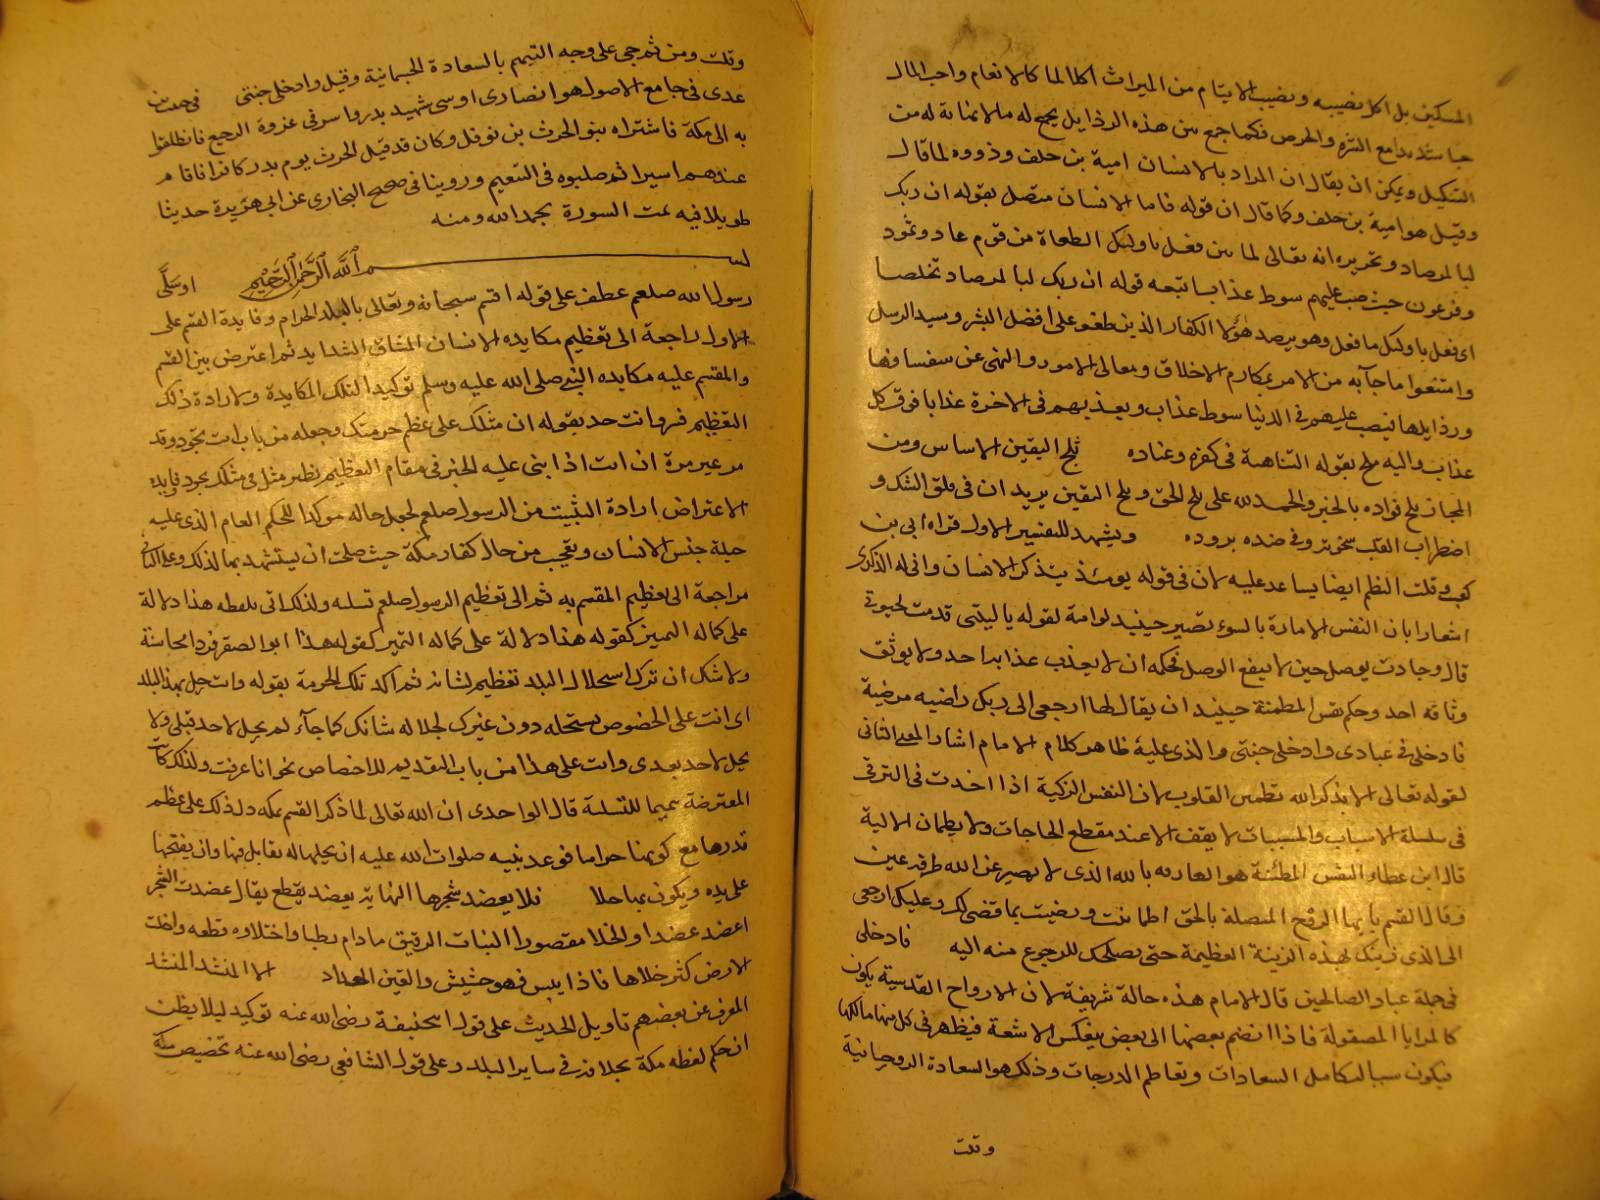 المسكين بل اكل نصيبه ونصيب الايتام من الميراث اكلا لما كالانعام واحب المال
حبا شديدا مع الشره والحرص فكما جمع بين هذه الرذايل يجمع له ما لا نهاية له من
التنكيل ويمكن ان يقال ان المراد بالانسان امية بن خلف وذووه لما قال
وقيل هو امية بن خلف وكما قال ان قوله فاما الانسان متصل بقوله ان ربك
لبالمرصاد وتحريره انه تعالى لما بين فعل باولئك الطغاة من قوم عاد وثمود
وفرعون حيث صب عليهم سوط عذاب اتبعه قوله ان ربك لبالمرصاد تخلصا
اى فعل باولئك ما فعل وهو يرصد هؤلا الكفار الذين طغو على افضل البشر وسيد الرسل
وامتنعوا ما جآ به من الامر بمكارم الاخلاق ومعالى الامور والنهى عن سفسافها
ورذايلها فيصب عليهم فى الدنيا سوط عذاب ويعذبهم فى الاخرة عذابا فوق كل
عذاب واليه ملح بقوله التناهية فى كفره وعناده ثلج اليقين الاساس ومن
المجاز ثلج فواده بالخبر والحمد لله على ثلج الحق وثلج اليقين يريد ان فى قلق الشك و
اضطراب القلب سخونة وفى ضده بروده ويشهد للتفسير الاول قراة ابى بن
كعب وقلت النظم ايضا يساعد عليه لان فى قوله يومئذ يتذكر الانسان وانى له الذكرى
اشعارا بان النفس الامارة بالسوء تصير حينيذ لوامة لقوله يا ليتنى قدمت لحيوتى
قال وجادت بوصل حين لا ينفع الوصل فحكمه ان لا يعذب عذابه احد ولا يوثق
وثاقه احد وحكم نفس المطمئنة حينيذ ان يقال لها ارجعى الى ربك راضيه مرضية
فادخلى فى عبادى وادخلى جنتى والذى عليه ظاهر كلام الامام اشار المعنى الثانى
لقوله تعالى الا بذكر الله تطمين القلوب لان النفس الزكية اذا اخدت فى الترقى
فى سلسلة الاسباب والمسببات لا يقف الا عند مقطع الحاجات ولا يطمان الا اليه
قال ابن عطاء النفس المطمئنة هو العارفه بالله الذى لا يصير عن الله طرفة عين
وقال القسم يا ايها الروح المتصلة بالحق اطمانت ورضيت بما قضى لك وعليك ارجعى
الى الذى زينك بهذه الزينة العظيمة حتى يصلحك للرجوع منه اليه فادخلى
فى جملة عباد الصالحين قال الامام هذه حالة شريفة لان الارواح القدسية يكون
كالمرايا المصقولة فاذا انضم بعضها الى بعض ينعكس الاشعة فيظهر فى كل منها ما لكلها
فيكون سببا لتكامل السعادات وتعاظم الدرجات وذلك هو السعادة الروحانية
وقلت
وقلت ومن ثم جى على وجه التتميم بالسعادة الجسمانية وقيل وادخلى جنتى فى خبيب بن
عدى فى جامع الاصول هو انصارى اوسى شهيد بدر واسر فى غزوة الرجيع فانطلقوا
به الى مكة فاشتراه بنو الحرث بن نوفل وكان قد قتل الحرث يوم بدر كافرا فاقام
عندهم اسيرا ثم صلبوه فى التنعيم وروينا فى صحيح البخارى عن ابى هريرة حديثا
طويلا فيه تمت السورة بحمد الله ومنه
بسم الله الرحمن الرحيم او سلى
رسول الله صلعم عطف على قوله اقتم سبحانه وتعالى بالبلد الحرام وفايدة القسم على
الاول راجعة الى تعظيم مكايده الانسان المشاق الشدايد ثم اعترض بين القسم
والمقسم عليه مكايده النبى صلى الله عليه وسلم توكيدا لتلك المكايدة ولارادة ذلك
التعظيم قرر وانت حل بقوله ان مثلك على عظم حرمتك وجعله من باب انت تجود وقد
مر غير مرة ان انت اذا بنى عليه الخبر فى مقام التعظيم نظير مثل فى مثلك يجود وفايدة
الاعتراض ارادة التثبيت من الرسول صلعم لجعل حاله موكدا للحكم العام الذى عليه
جبلة جنس الانسان وتعجيب من حال كفار مكة حيث صلحت ان يستشهد بها لذلك وعلى الثانى
مراجعة الى تعظيم المقسم به ثم الى تعظيم الرسول صلعم تسليه ولذلك اتى بلفظه هذا دلالة
على كماله التميز كقوله هذا دلالة على كماله التميز كقوله هذا ابو الصقر فردا محاسنة
ولا شك ان ترك استحلال البلد تعظيم لشانه ثم اكد تلك الحرمة بقوله وانت حل بهذا البلد
اى انت على الخصوص تستحله دون غيرك لجلاله شانك كما جآء لم يحل لاحد قبلى ولا
يحل لاحد بعدى وانت على هذا من باب التقديم للاختصاص نحو انا عرفت ولذلك كانت
المعترضة تميما للتسلية قال الواحدى ان الله تعالى لما ذكر القسم بمكه دل ذلك على عظم
قدرها مع كونها حراما فوعد نبيه صلوات الله عليه ان يحلها له يقابل فيها وان يفتحها
على يده ويكون بها حلا فلا يعضد شجرها النهاية يعضد يقطع يقال عضدت الشجر
اعضد عضدا والخلا مقصورا النبات الرقيق مادام رطبا واختلاوه قطعه واخلت
الارض كثر خلاها فاذا يبس فهو حشيش والقين الحداد الا المنشد المنشد
المعرف عن بعضهم تاويل الحديث على قول ابى حنيفة رضى الله عنه توكيد ليلا يظن
ان حكم لقطه مكة بخلافه فى ساير البلد وعلى قول الشافعى رضى الله عنه تخصيص مكة